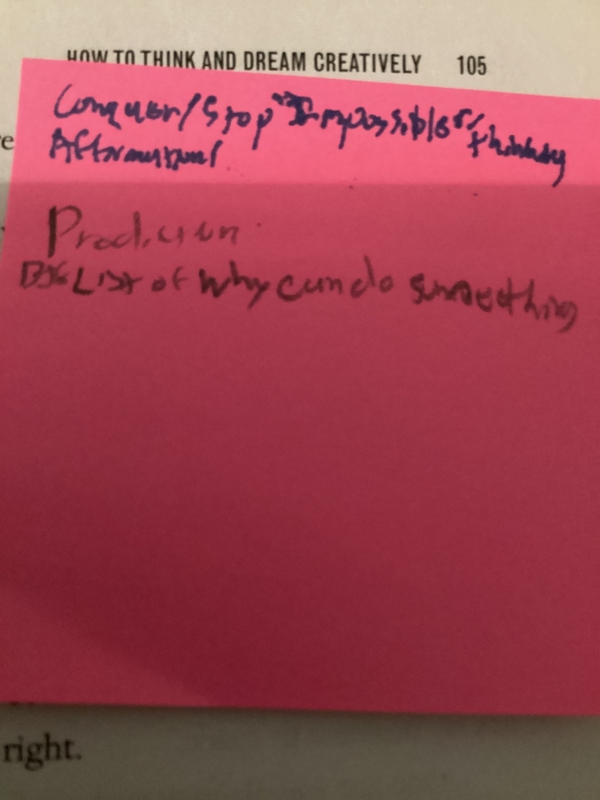 HOW TO THINK AND DREAM CREATIVELY 105
Conquer/Stop "Impossible"/
thinking
List of why can do something
right.